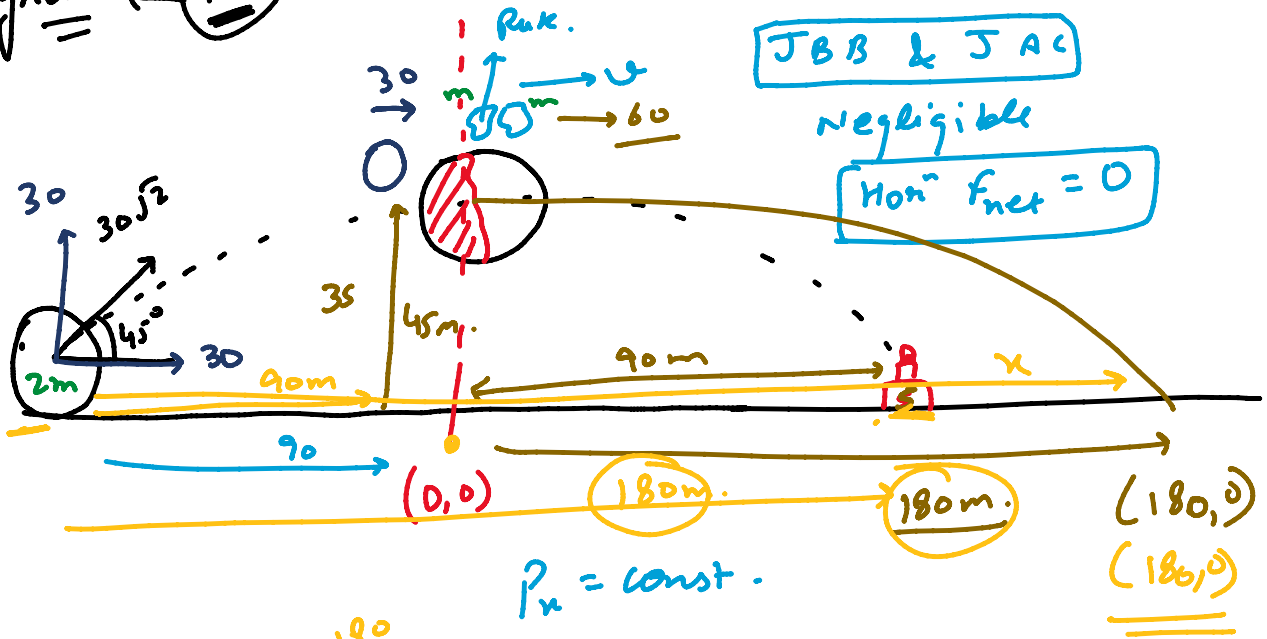 Ruk.
JBB & JAC
30
v
m
m
60
Negligible
Horiⁿ Fnet = 0
30
30√2
45°
35
45m.
30
2m
90m
90m
x
90
(0,0)
180m.
180m.
(180,0)
(180,0)
Px = const.
180